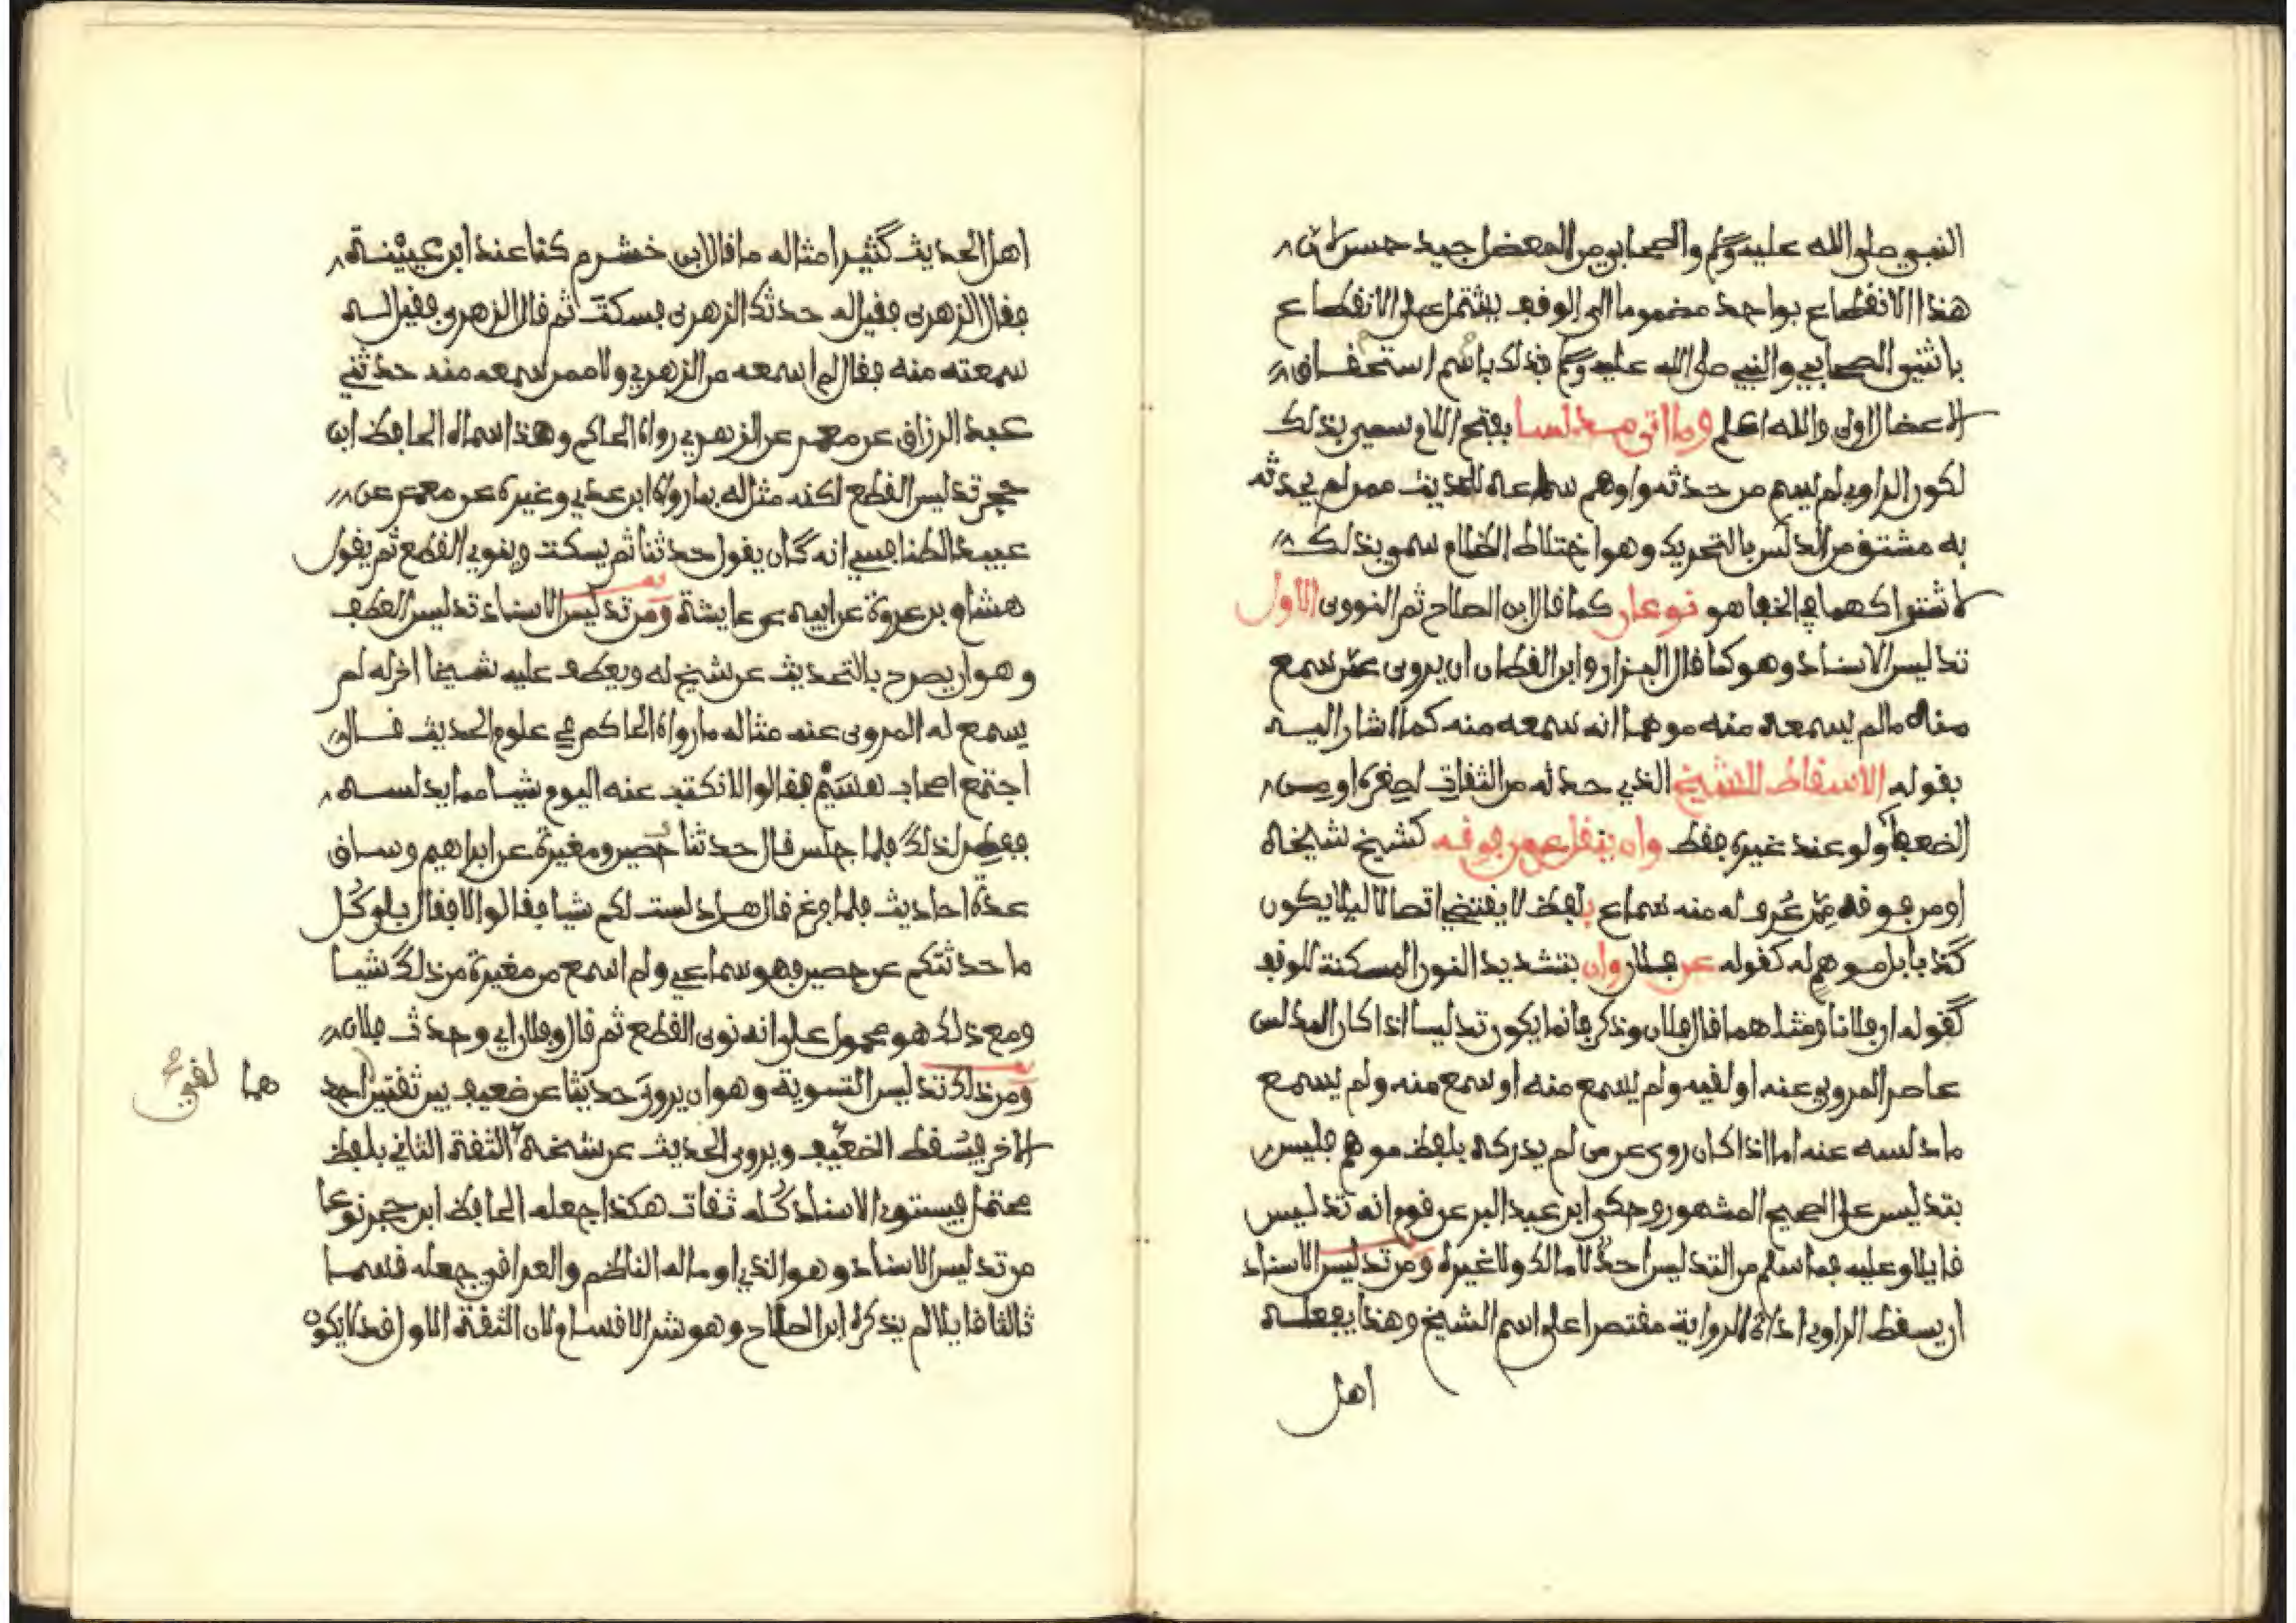 النبي صلى الله عليه وسلم والصحابي من المعضل جيد حسن لان
هذا الانقطاع بواحد مضموما الى الوقف يشتمل على الانقطاع
باثنين الصحابي والنبي صلى الله عليه وسلم فذلك باسم استحقاق
الاعضال اولى والله اعلم وما اتى مدلسا بفتح اللام سمي بذلك
لكون الراوي لم يسم من حدثه واوهم سماعه للحديث ممن لم يحدثه
به مشتق من الدلس بالتحريك وهو اختلاط الظلام سمي بذلك
لاشتراكهما في الخفا هو نوعان كما قال ابن الصلاح ثم النووي الاول
تدليس الاسناد وهو كما قال البزار وابن القطان ان يروي عمن سمع
منه ما لم يسمعه منه موهما انه سمعه منه كما اشار اليه
بقوله الاسقاط للشيخ الذي حدثه من الثقات لصغره او من
الضعفا ولو عند غيره فقط وان ينقل عن من فوقه كشيخ شيخه
او من فوقه ممن عرف له منه سماع بلفظ لا يقتضي اتصالا ليلا يكون
كذبا بل موهم له كقوله عن فلان وان بتشديد النون المسكنة للوقف
كقوله ان فلانا ومثلهما قال فلان وذكر فانما يكون تدليسا اذا كان المدلس
عاصر المروي عنه او لقيه ولم يسمع منه او سمع منه ولم يسمع
ما دلسه عنه اما اذا كان روى عن من لم يدركه بلفظ موهم فليس
بتدليس على الصحيح المشهور وحكى ابن عبد البر عن قوم انه تدليس
قايلا وعليه فما سلم من التدليس احد لا مالك ولا غيره ومن تدليس الاسناد
ان يسقط الراوي اداة الرواية مقتصرا على اسم الشيخ وهذا يفعله
اهل
اهل الحديث كثيرا مثاله ما قال ابن خشرم كنا عند ابن عيينة
فقال الزهري فقيل له حدثك الزهري فسكت ثم قال الزهري فقيل له
سمعته منه فقال لم اسمعه من الزهري ولا ممن سمعه منه حدثني
عبد الرزاق عن معمر عن الزهري رواه الحاكم وهذا سماه الحافظ ابن
حجر تدليس القطع لكنه مثاله بما رواه ابن عدي وغيره عن معمر عن
عبيد الطنافسي انه كان يقول حدثنا ثم يسكت وينوي القطع ثم يقول
هشام بن عروة عن ابيه عن عايشة ومن تدليس الاسناد تدليس العطف
وهو ان يصرح بالتحديث عن شيخ له ويعطف عليه شيخا اخر له لم
يسمع له المروي عنه مثاله ما رواه الحاكم في علوم الحديث قال
اجتمع اصحاب هشيم فقالوا لا نكتب عنه اليوم شيا مما يدلسه
ففطن لذلك فلما جلس قال حدثنا حصين ومغيرة عن ابراهيم وساق
عدة احاديث فلما فرغ قال هل دلست لكم شيا فقالوا لا فقال بلى كل
ما حدثتكم عن حصين فهو سماعي ولم اسمع من مغيرة من ذلك شيا
ومع ذلك هو محمول على انه نوى القطع ثم قال وفلان اي وحدث فلان
ومن ذلك تدليس التسوية وهو ان يروي حديثا عن ضعيف بين ثقتين احد هما لقي
الاخر فيسقط الضعيف ويروي الحديث عن شيخه الثقة الثاني بلفظ
محتمل فيستوي الاسناد كله ثقات هكذا جعله الحافظ ابن حجر نوعا
من تدليس الاسناد وهو الذي اوما له الناظم والعراقي جعله قسما
ثالثا قايلا لم يذكره ابن الصلاح وهو شر الاقسام لان الثقة الاول قد لا يكون